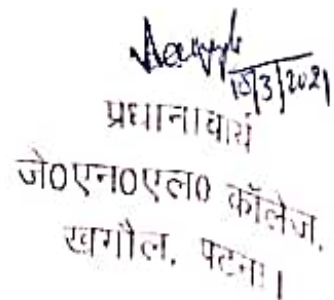 10/3/2021
प्रधानाचार्य
जे0एन0एल0 कॉलेज,
खगौल, पटना।